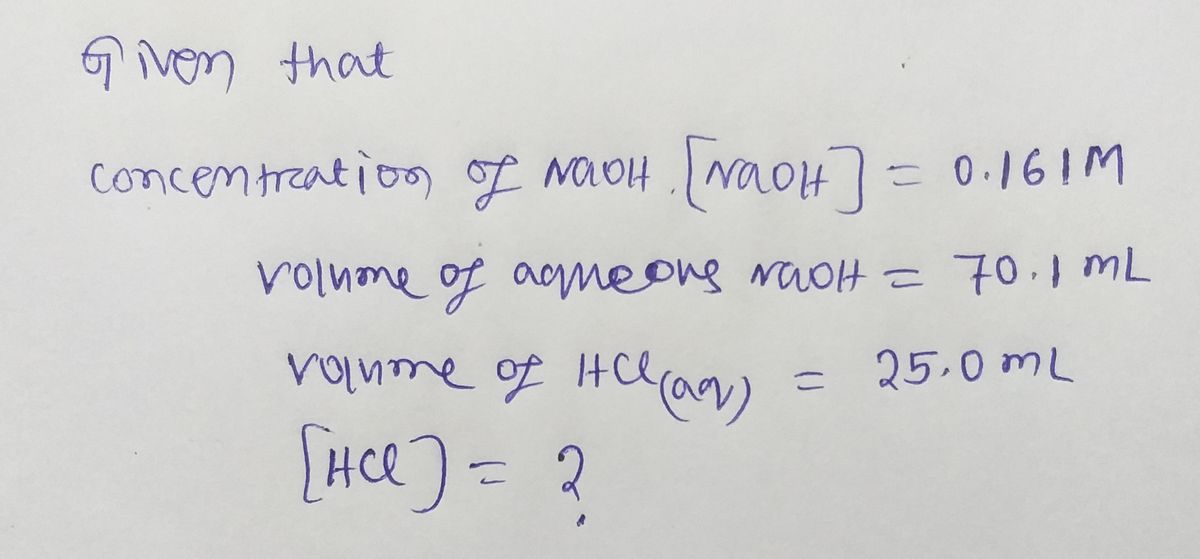 Given that
concentration of NaOH. [NaOH] = 0.161M
volume of aqueous NaOH = 70.1 mL
volume of HCl(aq) = 25.0 mL
[HCl] = ?